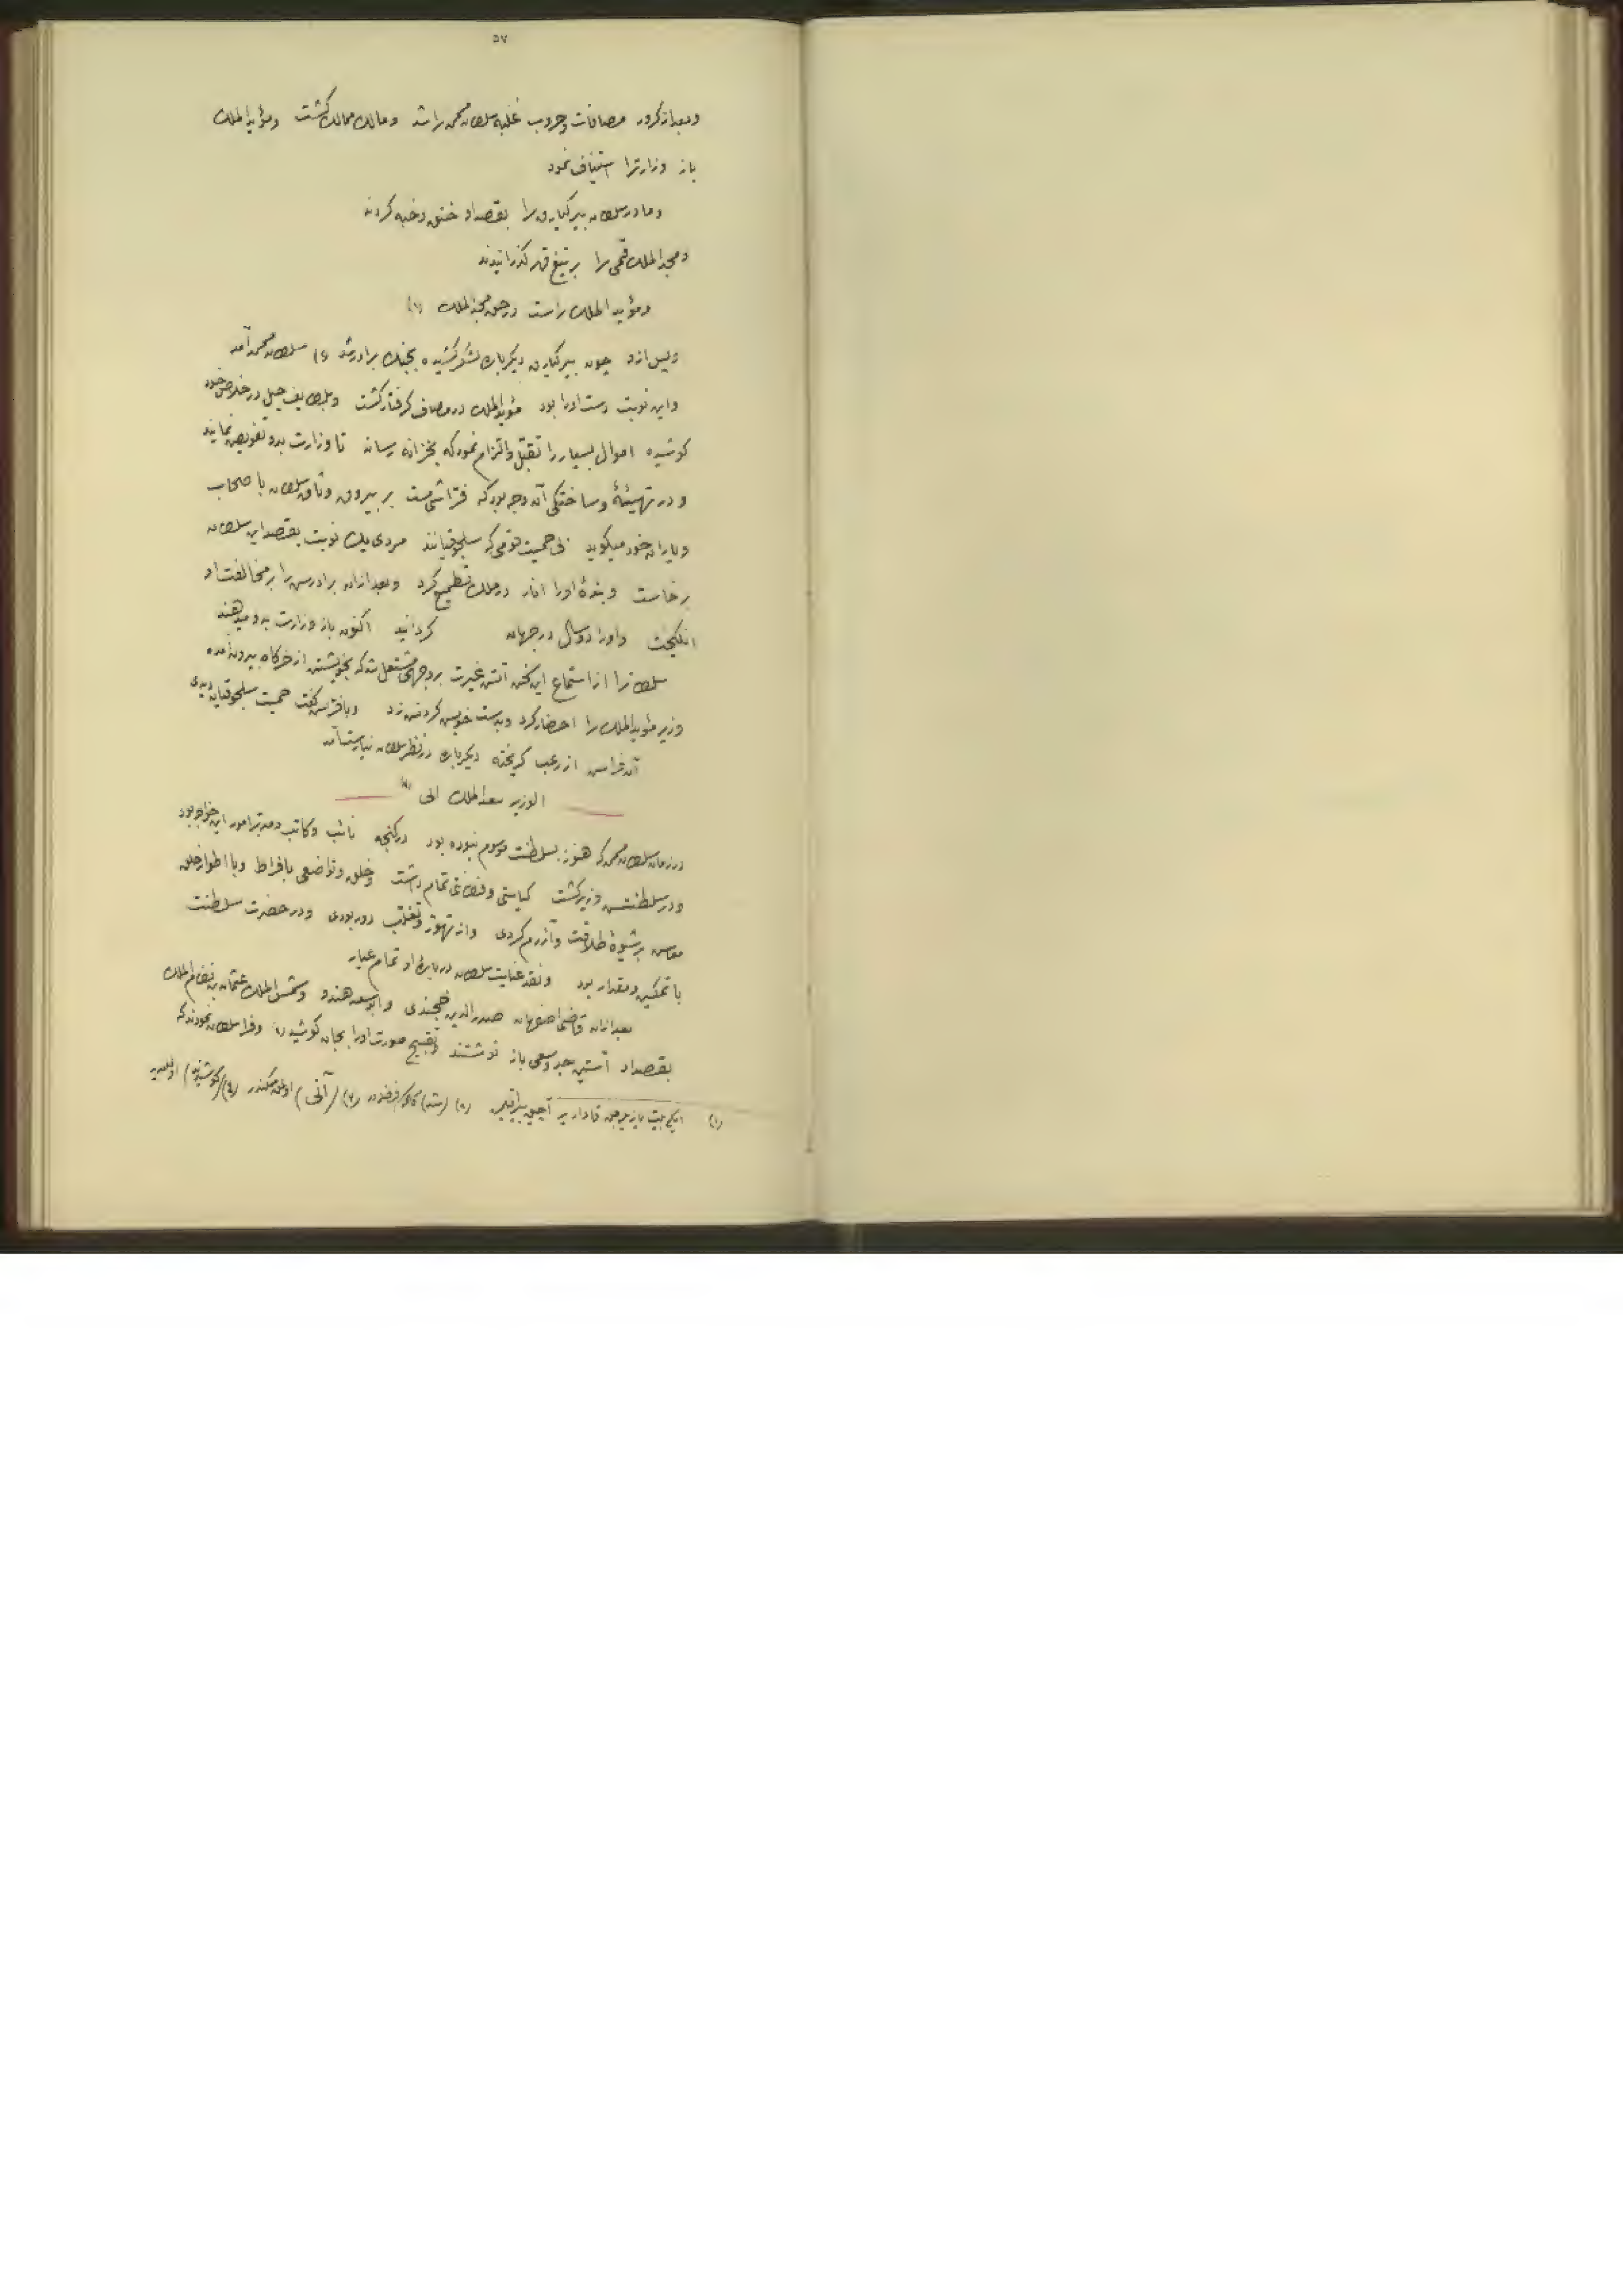 ٥٧
وبعد از کرور مصافات وحروب غلبه سلطان محمد را شد ومالك ممالك كشت ومؤيد الملك
باز وزارترا استیناف نمود
ومادر سلطان بيركيارق را بقصد او خنق وخبه کردند
ومجد الملك قمی را بر تیغ قهر کذرانیدند
ومؤيد الملك راست در حق مجد الملك (١)
وپس ازو چون بيركيارق ديكرباره لشكر كشيده بجنك برادر شد (٢) سلطان محمد آمد
واین نوبت دست اورا بود مؤيد الملك در مصاف گرفتار كشت وبلطايف حيل در خلاص خود
كوشيده اموال بسيار را تقبل والتزام نمود كه بخزانه رساند تا وزارت بدو تفويض نمايند
ودر تهیئهٔ وساختکی آن وجه بود که فراشی مست بر بيرون وثاق سلطان با صحاب
ویاران خود میکوید زهی حمیت قومی که سلجوقیانند مردی یك نوبت بقصد این سلطان
برخاست وبندهٔ اورا انار در ملك تطمیع کرد وبعد ازان برادرش را بر مخالفت او
انکیخت واورا دو سال در جهان کردانید اکنون باز وزارت بدو میدهند
سلطانرا از استماع این سخن آتش غیرت بر وجهی مشتعل شد که بخویشتن از خرکاه بیرون آمده
وزیر مؤيد الملك را احضار كرد وبدست خویش کردنش زد وبا فراش کفت حمیت سلجوقیان دیدی
آن فراش از رعب کریخته دیکرباره در نظر سلطان نیارست آمد
الوزير سعد الملك آبی (٣)
در زمان سلطان محمد که هنوز بسلطنت موسوم نبوده بود در کنجه نائب وکاتب ومدبر امور این خواجه بود
ودر سلطنتش وزیر کشت کیاستی وفطانتی تمام داشت وخلق وتواضعی بافراط وبا اطوار خلق
معاش بر شیوهٔ طلاقت وآزرم کردی واز تهور وتغلب دور بودی ودر حضرت سلطنت
با تمکین ومقدار بود ونقد عنایت سلطان در بارهٔ او تمام عیار
بعد ازان قاضی اصفهان صدر الدين خجندی وابو سعد هندو وشمس الملك عثمان بن نظام الملك
بقصد او آستین جد وسعی باز نوشتند وتقبیح صورت اورا بجان کوشیدند وفرا سلطان نمودند که